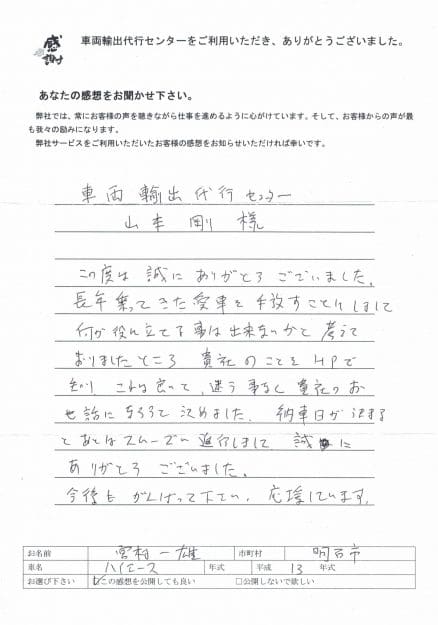 感謝
車両輸出代行センターをご利用いただき、ありがとうございました。
あなたの感想をお聞かせ下さい。
弊社では、常にお客様の声を聴きながら仕事を進めるように心がけています。そして、お客様からの声が最
も我々の励みになります。
弊社サービスをご利用いただいたお客様の感想をお知らせいただければ幸いです。
車両輸出代行センター
山本 剛 様
この度は 誠に ありがとう ございました。
長年 乗ってきた 愛車を 手放すことにしまして
何か役に立てる事は出来ないかと 考えて
おりましたところ 貴社のことを HPで
知り、これは良いって、迷う事なく 貴社のお
世話になろうと決めました。 納車日が決まる
とあとはスムーズに進行しまして 誠に
ありがとう ございました。
今後も がんばって下さい、応援しています。
お名前 宮村 一雄 市町村 明石市
車名 ハイエース 年式 平成 13 年式
お選び下さい ☑この感想を公開しても良い □公開しないで欲しい